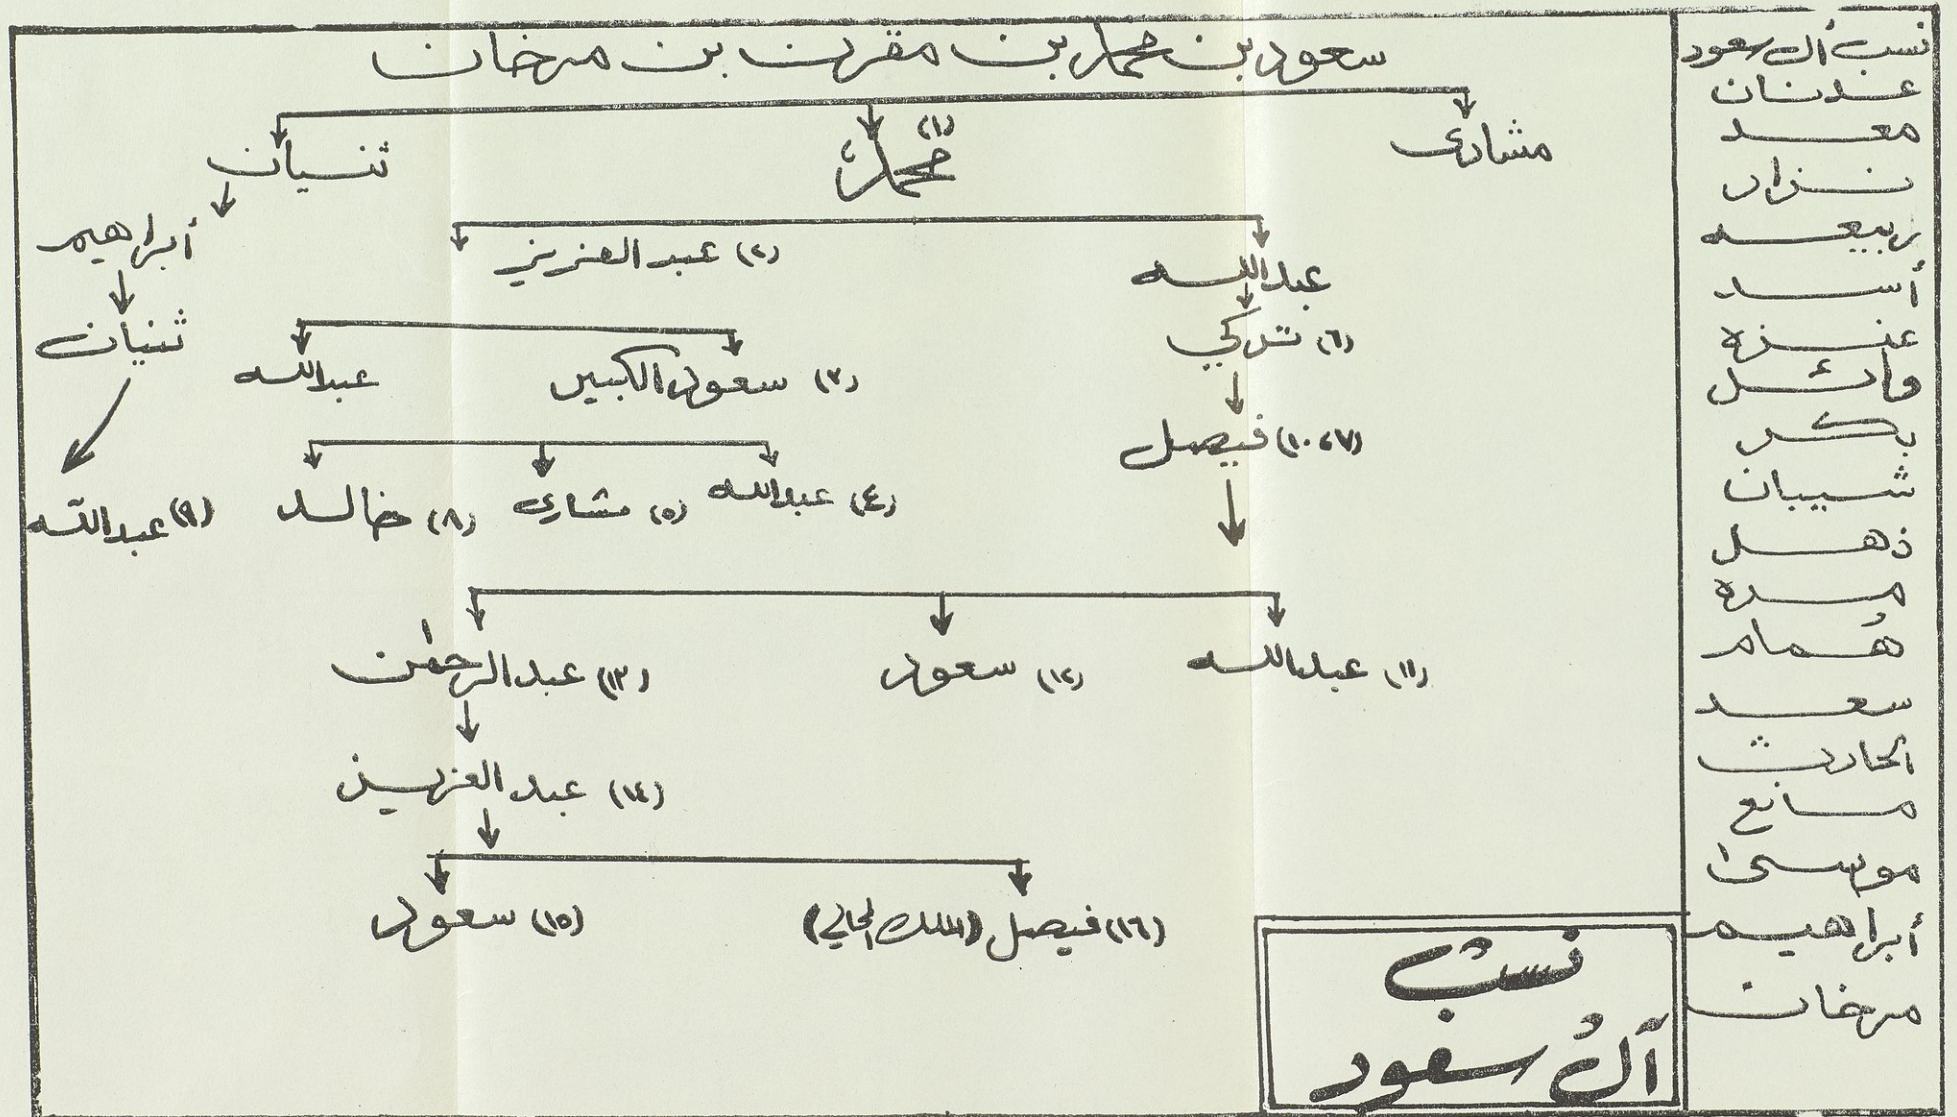 نسب آل سعود
عدنان
معد
نزار
ربيعه
أسد
عنزه
وائل
بكر
شيبان
ذهل
مره
هُمام
سعد
الحارث
مانع
موسى
أبراهيم
مرخان
سعود بن محمد بن مقرن بن مرخان
مشاري
(١) محمد
ثنيان
أبراهيم
ثنيان
(٩) عبدالله
عبدالله
(٢) عبد العزيز
(٦) تركي
(٣) سعود الكبير
عبدالله
(٧، ١٠) فيصل
(٤) عبدالله
(٥) مشاري
(٨) خالد
(١١) عبدالله
(١٢) سعود
(١٣) عبدالرحمٰن
(١٤) عبد العزيز
(١٦) فيصل (الملك الحالي)
(١٥) سعود
نسب
آلُ سعود